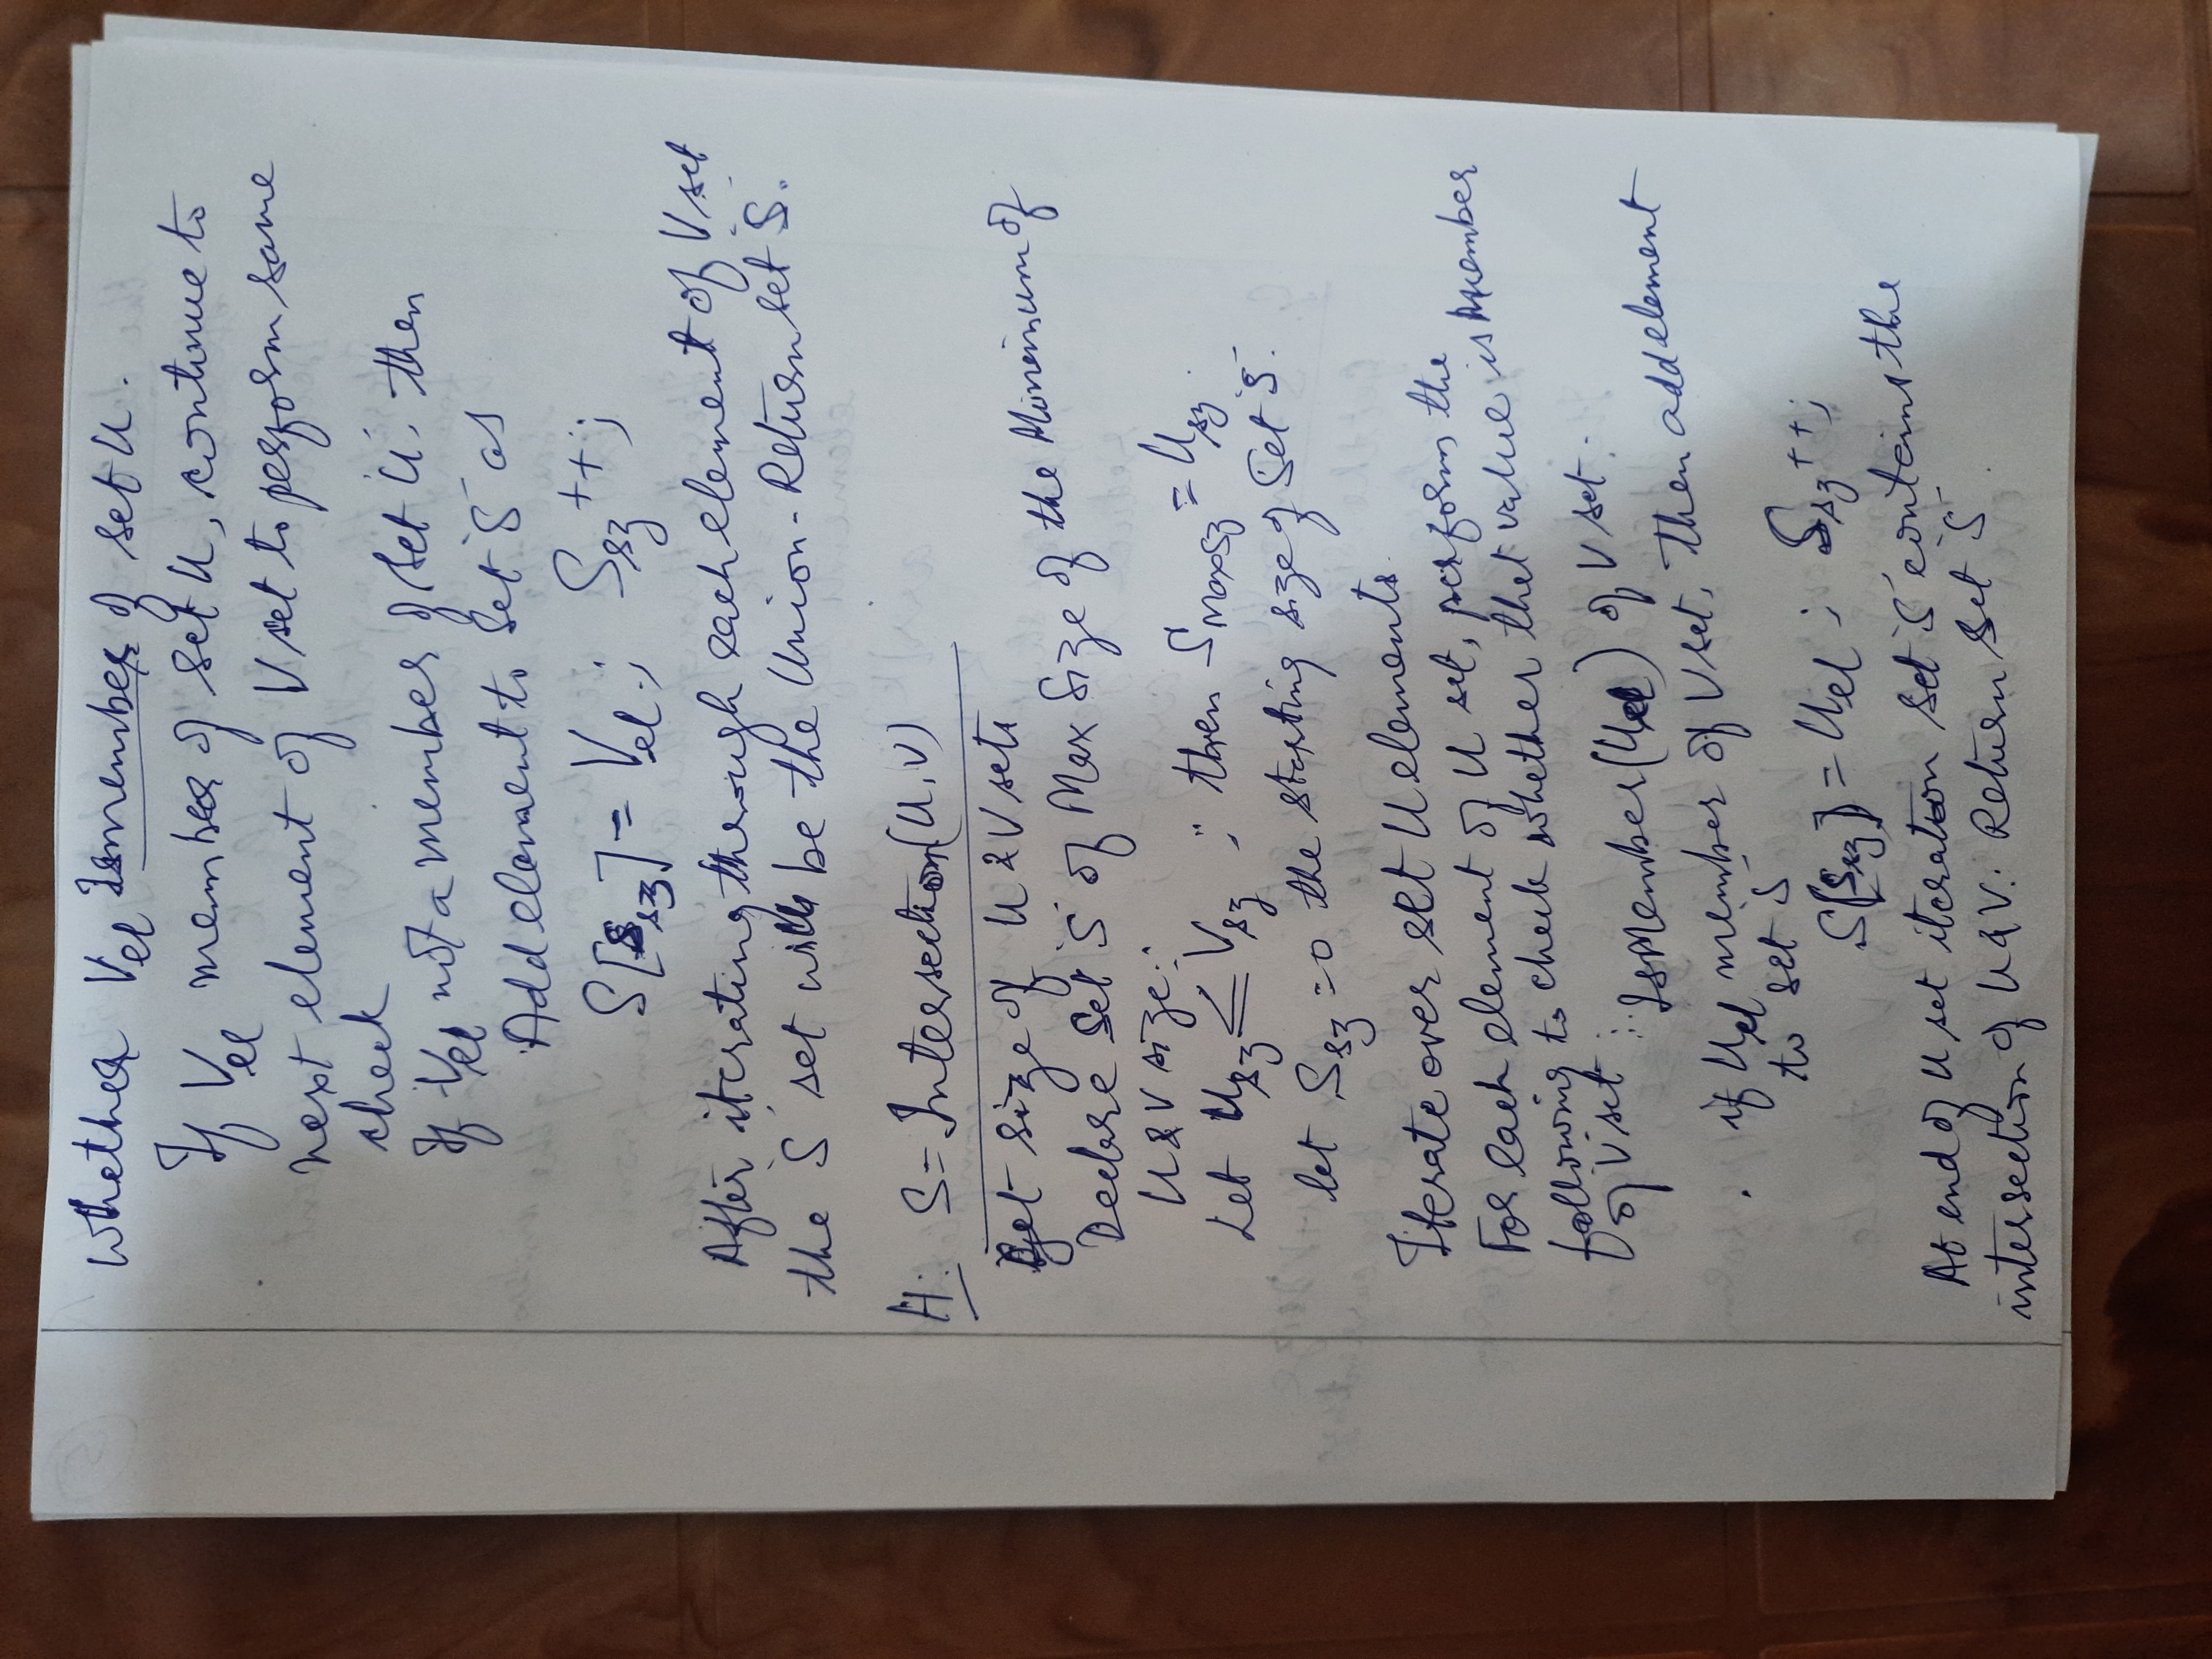 whether Vel Ismember of set U.
If Vel member of set U, continue to
next element of V set to perform same
check
If Vel not a member of set U, then
Add element to set S as
S[Ssz] = Vel; Ssz ++;
After iterating through each element of V set
the S set will be the Union. Return set S.
4. S = Intersection(U, V)
Get size of U & V sets
Declare set S of Max size of the Minimum of
U & V size.
Let Usz ≤ Vsz, then Smaxsz = Usz.
let Ssz = 0 the starting size of set S.
Iterate over set U elements.
For each element of U set, perform the
following to check whether that value is member
of V set.
IsMember(Uel) of V set.
if Uel member of V set, then add element
to set S
S[Ssz] = Uel; Ssz ++;
At end of U set iteration set S contains the
intersection of U & V. Return set S.